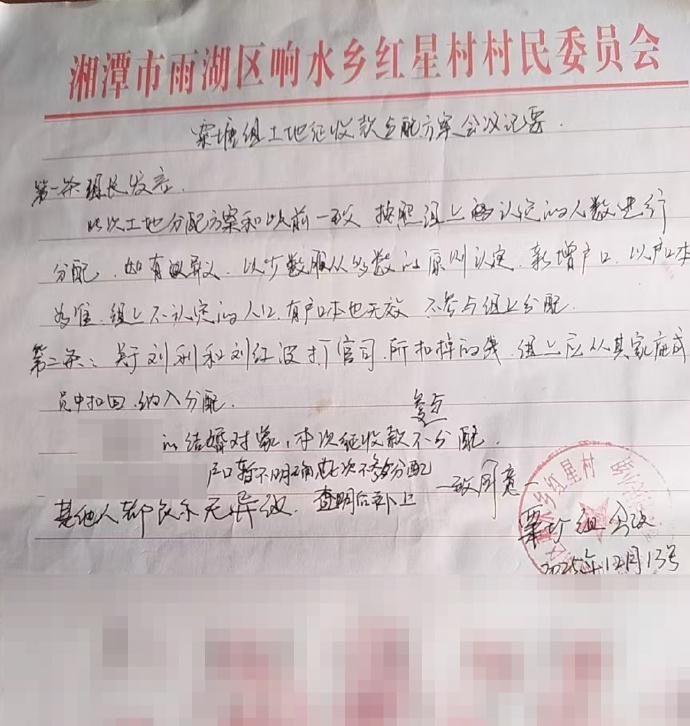 湘潭市雨湖区响水乡红星村村民委员会
栗塘组土地征收款分配方案会议记要.
第一条组长发言.
此次土地分配方案和以前一致 按照组上确认定的人数进行
分配, 如有异议, 以少数服从多数的原则认定, 新增户口, 以户口本
为准, 组上不认定的人口, 有户口本也无效 不参与组上分配.
第二条: 关于刘利和刘红波打官司, 所扣掉的钱, 组上应从其家庭成
员中扣回, 纳入分配.
参与
的结婚对象, 本次征收款不分配.
户口暂不明确此次不参与分配
其他人都表示无异议 查明后补上 一致同意
组会议
2025年12月13号
乡红星村